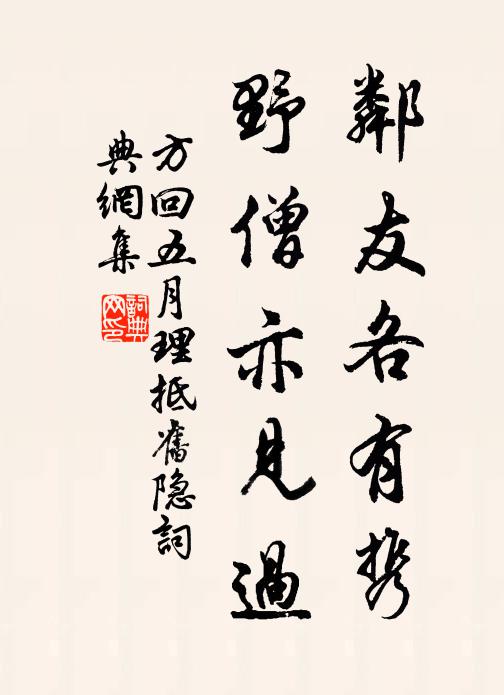 鄰友各有携
野僧亦見過
方回五月理抵舊隐詞
典網集
詞典网印